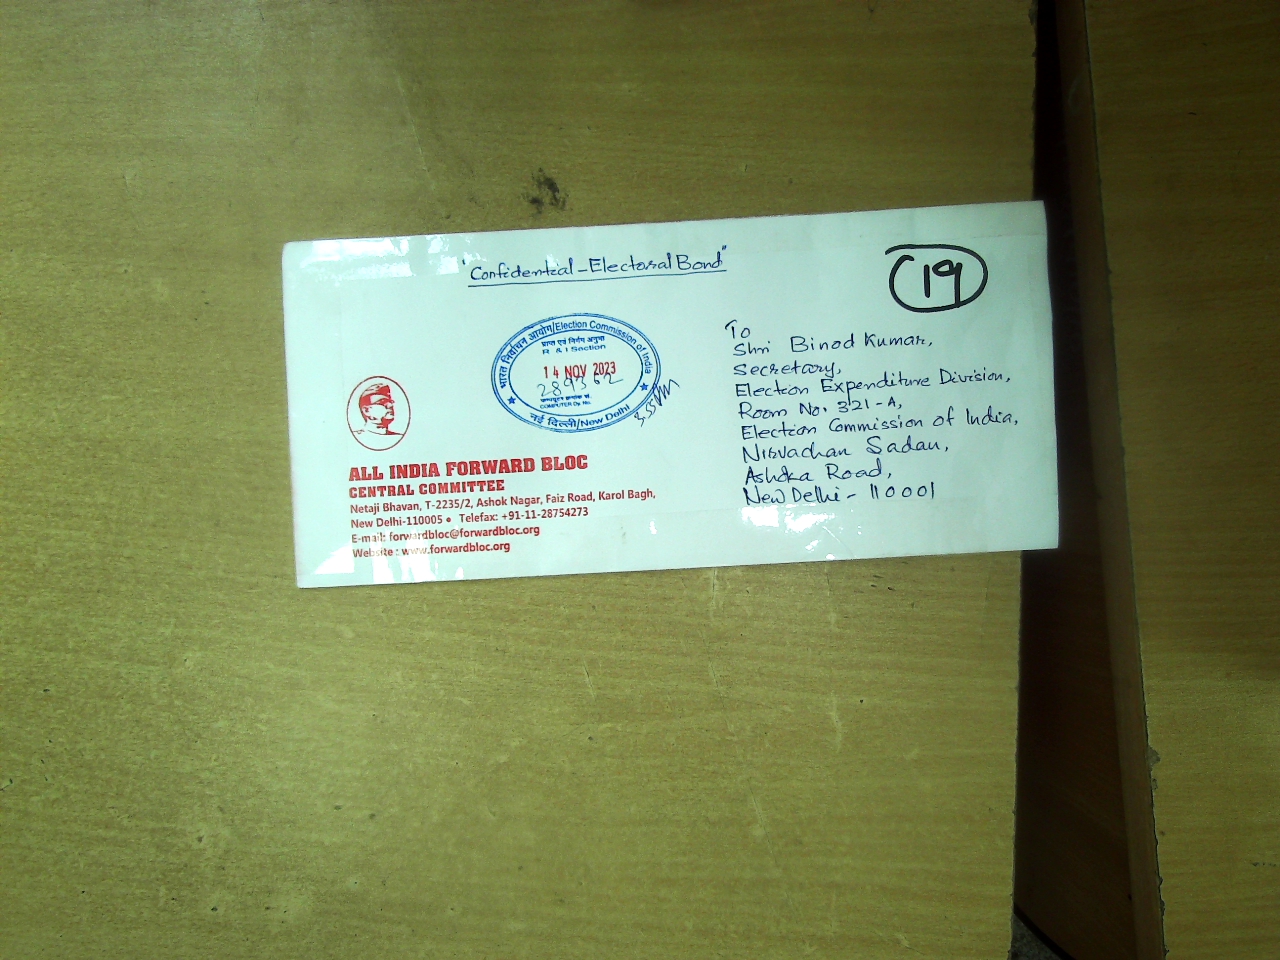 "Confidential - Electoral Bond"
19
भारत निर्वाचन आयोग/Election Commission of India
प्राप्त एवं निर्गम अनुभाग
R & I Section
14 NOV 2023
289362
COMPUTER Dy. No.
नई दिल्ली/New Delhi
To
Shri Binod Kumar,
Secretary,
Election Expenditure Division,
Room No. 321-A,
Election Commission of India,
Nirvachan Sadan,
Ashoka Road,
New Delhi - 110001
ALL INDIA FORWARD BLOC
CENTRAL COMMITTEE
Netaji Bhavan, T-2235/2, Ashok Nagar, Faiz Road, Karol Bagh,
New Delhi-110005 • Telefax: +91-11-28754273
E-mail: forwardbloc@forwardbloc.org
Website : www.forwardbloc.org